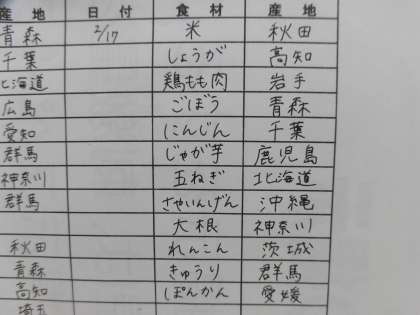 産地 日付 食材 産地
青森 2/17 米 秋田
千葉 しょうが 高知
北海道 鶏もも肉 岩手
広島 ごぼう 青森
愛知 にんじん 千葉
群馬 じゃが芋 鹿児島
神奈川 玉ねぎ 北海道
群馬 さやいんげん 沖縄
大根 神奈川
秋田 れんこん 茨城
青森 きゅうり 群馬
高知 ぽんかん 愛媛
埼玉